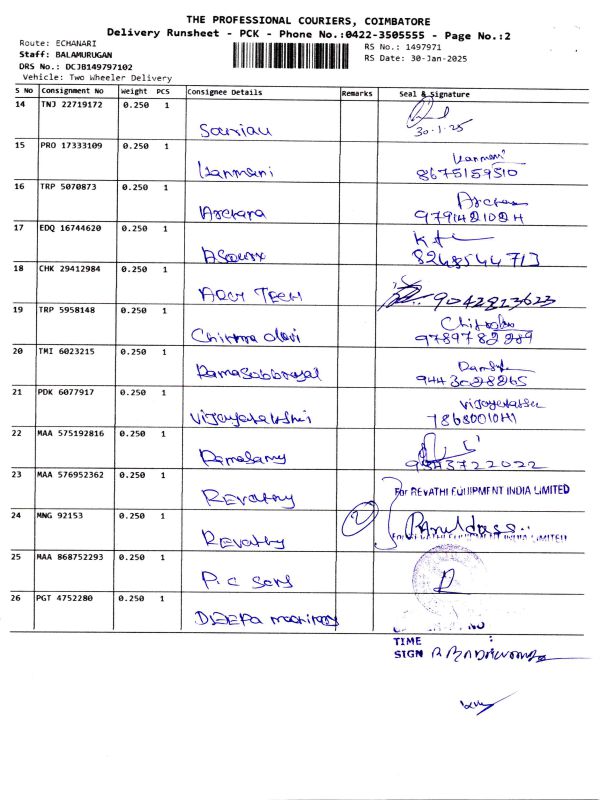 THE PROFESSIONAL COURIERS, COIMBATORE
Delivery Runsheet - PCK - Phone No.:0422-3505555 - Page No.:2
Route: ECHANARI
RS No.: 1497971
Staff: BALAMURUGAN
RS Date: 30-Jan-2025
DRS No.: DCJB149797102
Vehicle: Two Wheeler Delivery
S No Consignment No Weight PCS Consignee Details Remarks Seal & Signature
14 TNJ 22719172 0.250 1
30.1.25
15 PRO 17333109 0.250 1 Kanmani Kanmani
8675159510
16 TRP 5070873 0.250 1
17 EDQ 16744620 0.250 1
8248544713
18 CHK 29412984 0.250 1 TECH 9042823623
19 TRP 5958148 0.250 1 Chithra devi
9789782289
20 TMI 6023215 0.250 1
9443028265
21 PDK 6077917 0.250 1 Vijayalakshmi Vijayalakshmi
22 MAA 575192816 0.250 1 Ramasamy
9843722022
23 MAA 576952362 0.250 1 REvathy For REVATHI EQUIPMENT INDIA LIMITED
24 MNG 92153 0.250 1 REvathy 2
For REVATHI EQUIPMENT INDIA LIMITED
25 MAA 868752293 0.250 1 P.C Sons
26 PGT 4752280 0.250 1 DEEPA
TIME :
SIGN